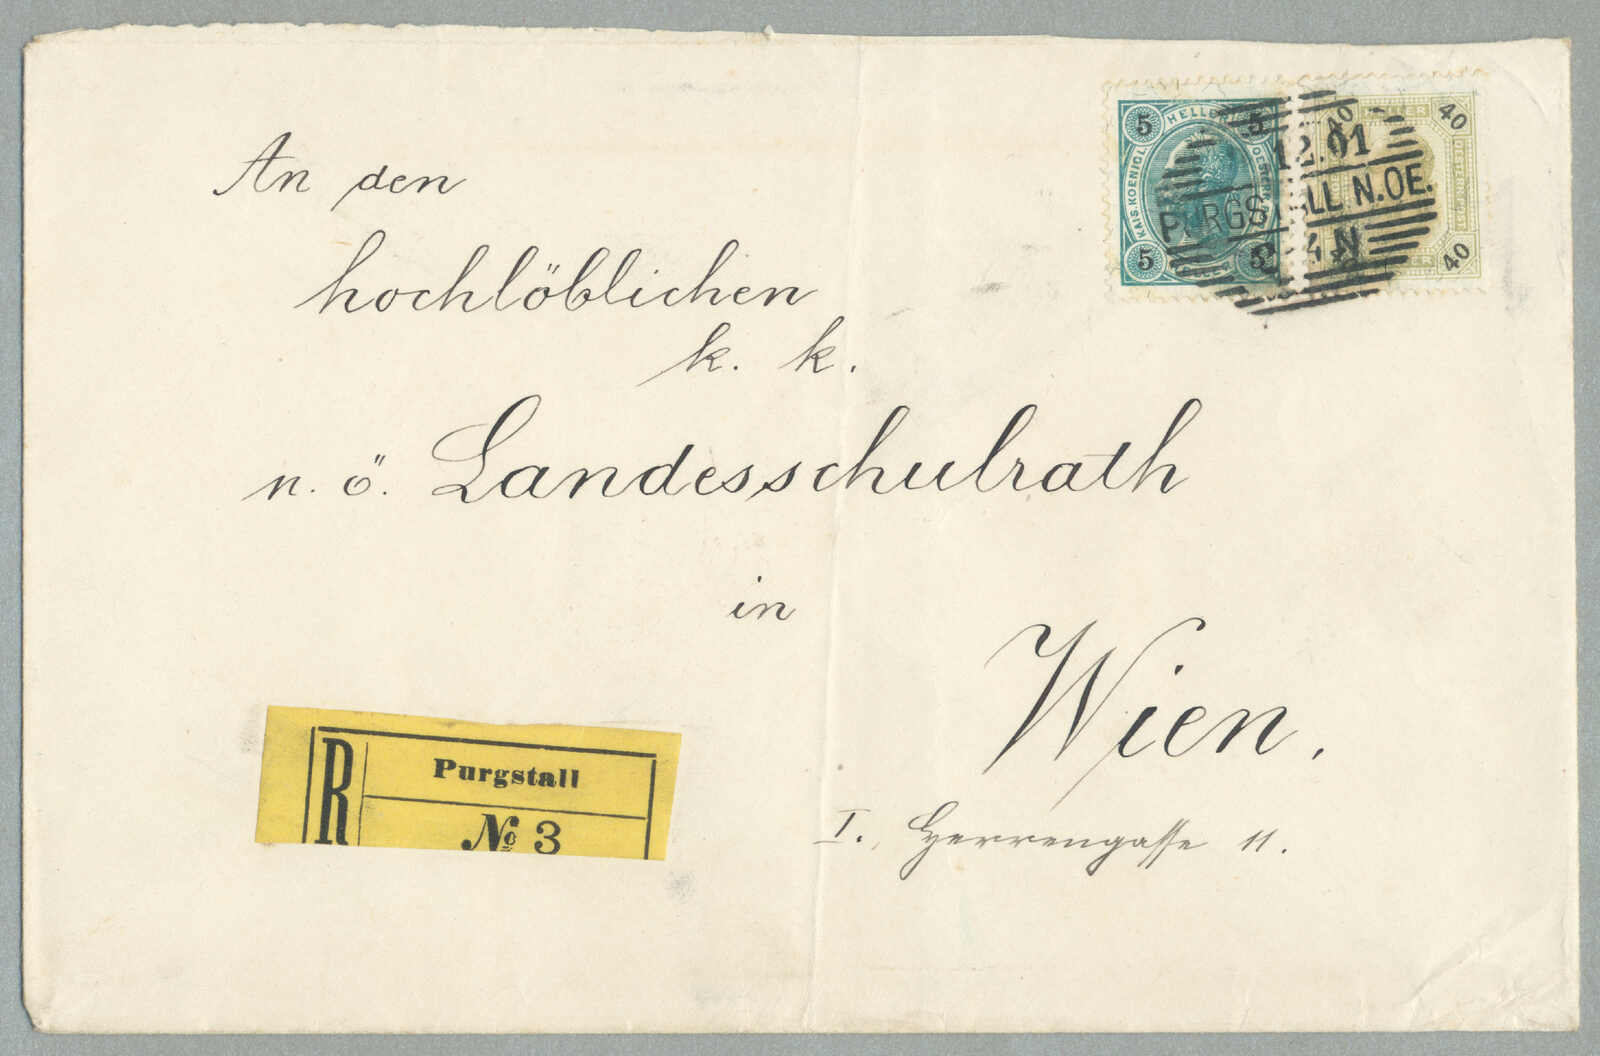 An den
hochlöblichen
k. k.
n. ö. Landesschulrath
in
Wien.
I. Herrengasse 11.
R
Purgstall
№ 3
5 HELLER 5
KAIS. KOENIGL.
5 5
40 HELLER 40
40
12.01
PURGSTALL N.OE.